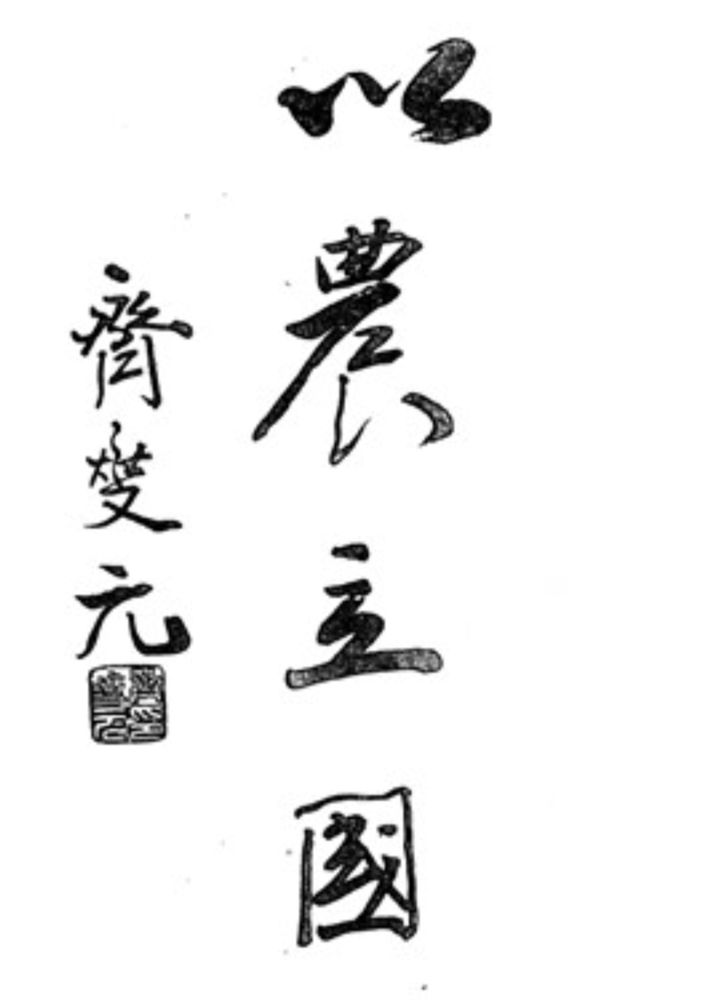 以農立國
齊燮元